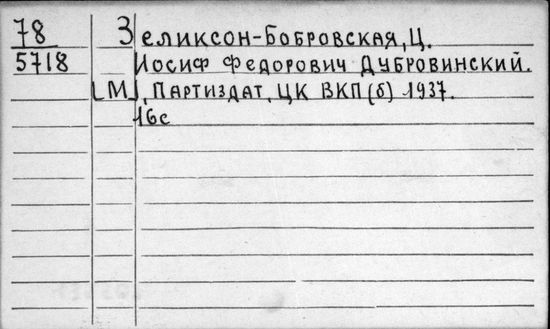 78 Зеликсон-Бобровская, Ц.
5718 Иосиф Федорович Дубровинский.
[М], Партиздат, ЦК ВКП(б) 1937.
16с